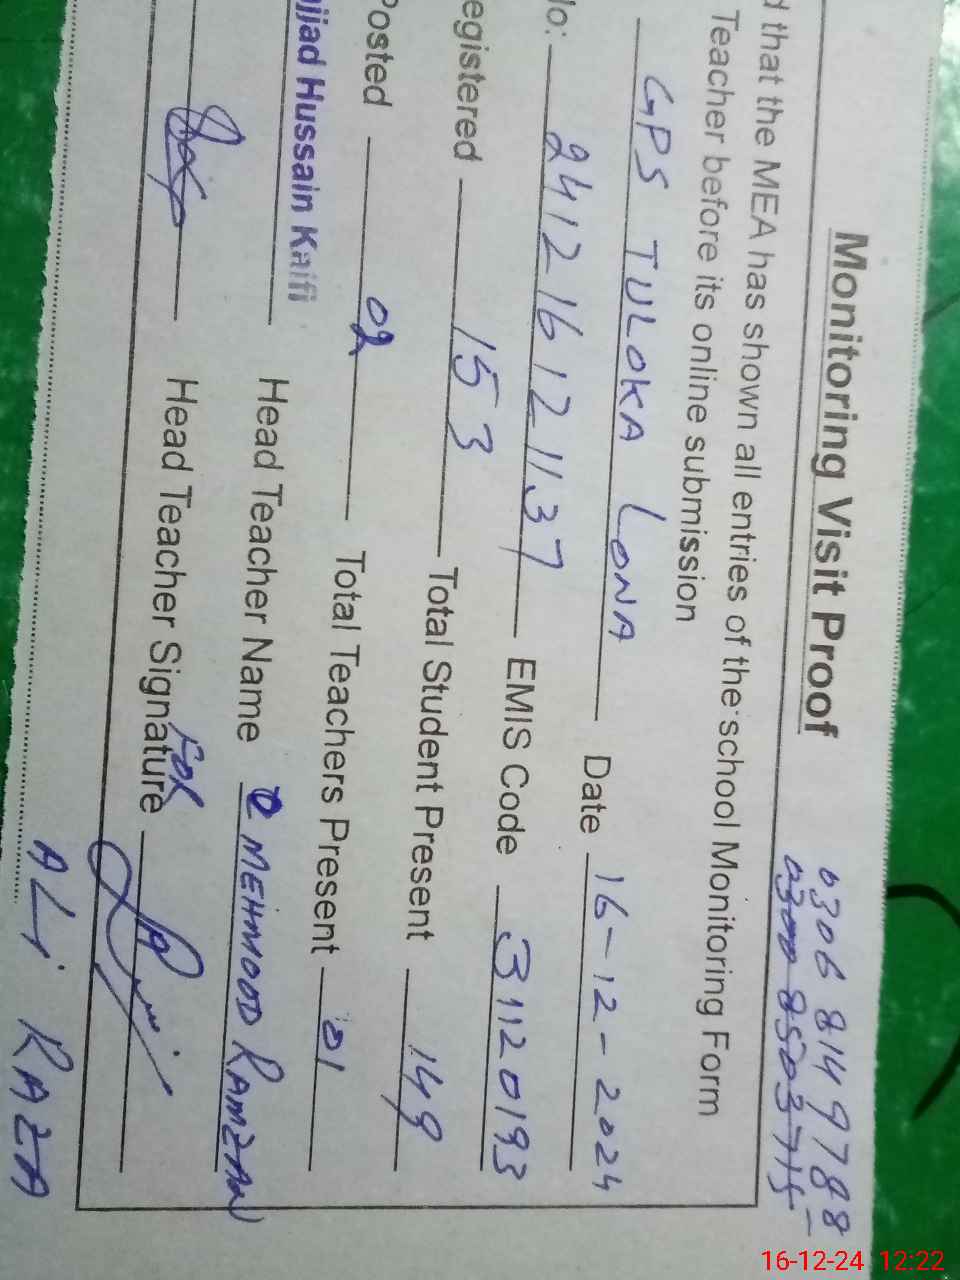 Monitoring Visit Proof
0306 8149788
0300 8503715
that the MEA has shown all entries of the school Monitoring Form
Teacher before its online submission
GPS TULOKA LONA Date 16-12-2024
No: 241216121137 EMIS Code 31120193
egistered 153 Total Student Present 149
Posted 02 Total Teachers Present 01
jjad Hussain Kaifi Head Teacher Name MEHMOOD RAMZAN
Head Teacher Signature For
ALI RAZA
16-12-24 12:22